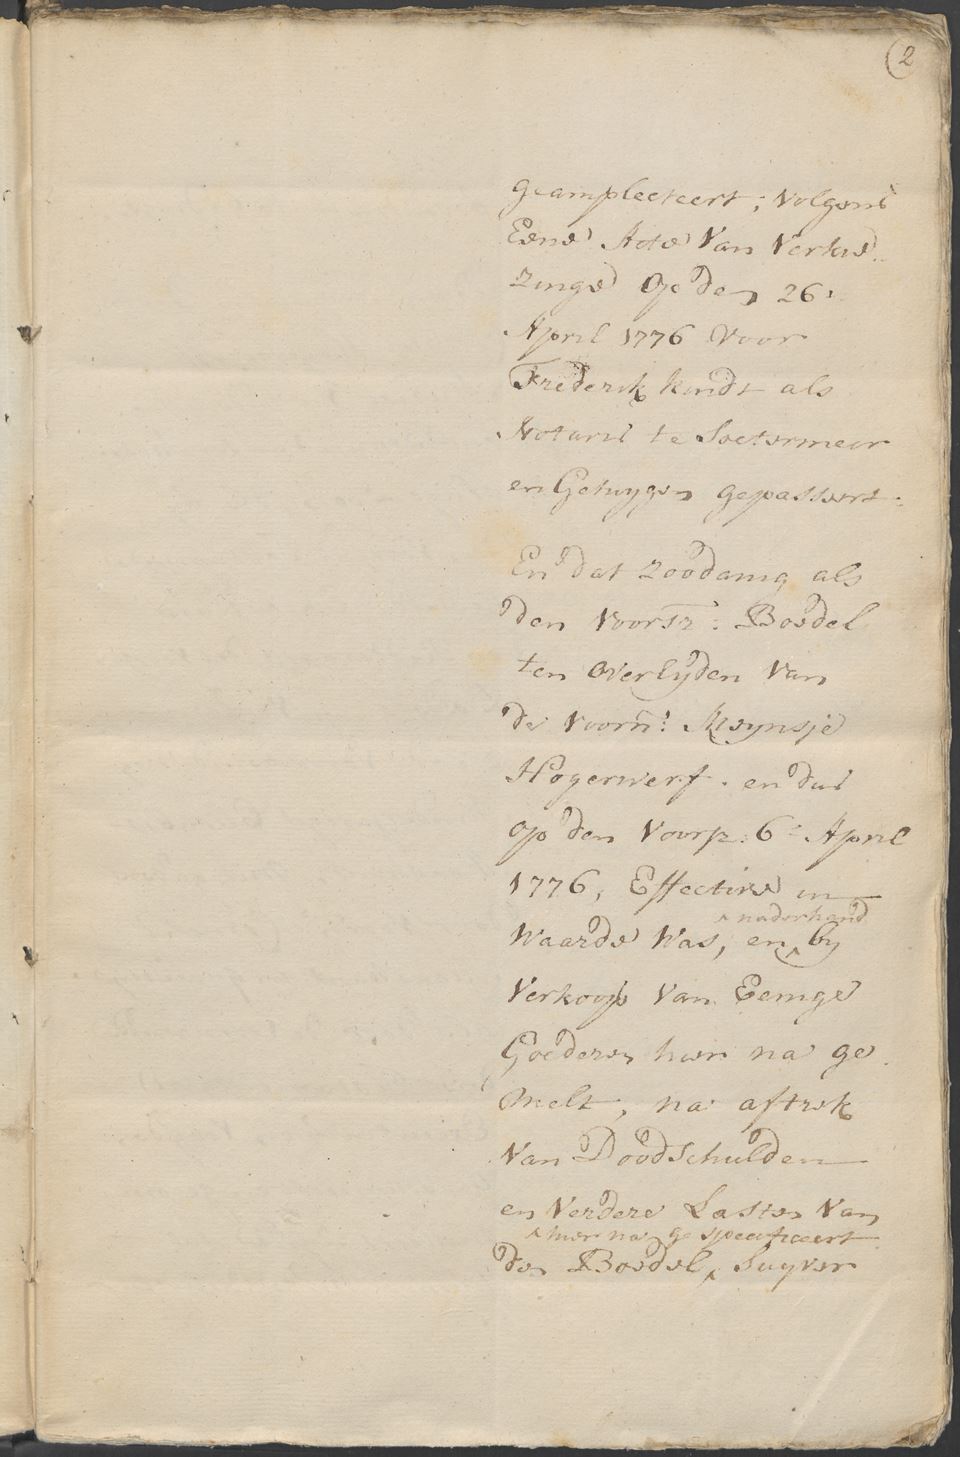 2
geamplecteert; volgens
Eene Acte van Verkie
zinge op den 26e
April 1776 voor
Frederik kindt als
Notaris te Soetermeer
en Getuygen gepasseert.
En dat zoodanig als
den voorsz: Boedel
ten overlijden van
de voorn: Meynsje
Hogerwerf. en dus
op den voorsz: 6e April
1776, Effective in
^ naderhand
waarde was, en ^ by
verkoop van Eenige
Goederen hier na ge
melt, na aftrek
van Doodschulden
en verdere Lasten van
^ hier na gespecificeert
den Boedel ^ suyver